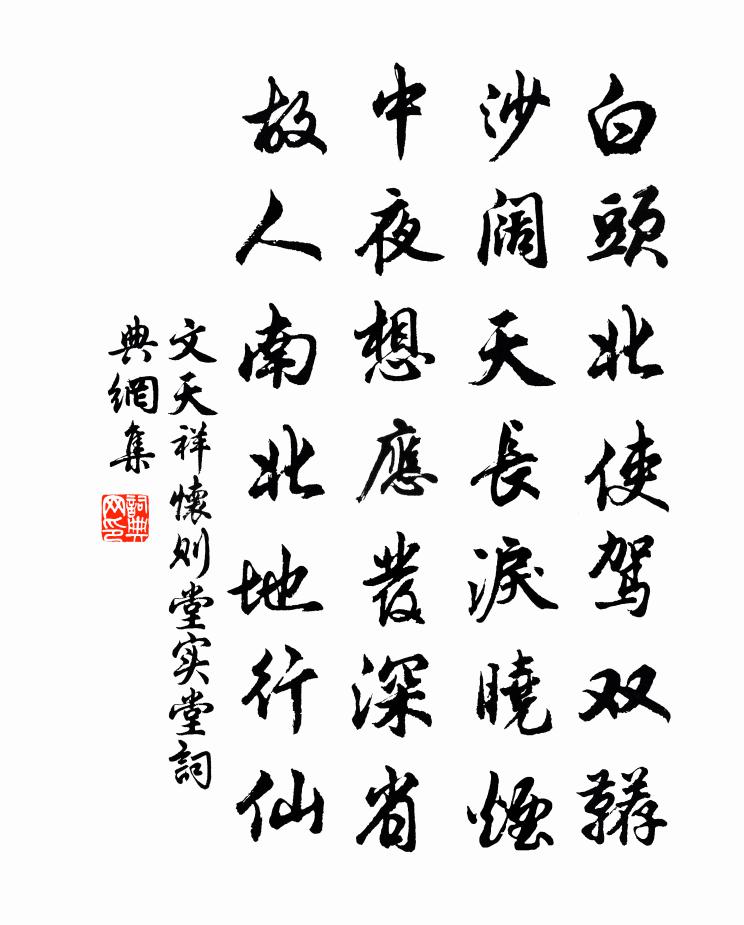 白頭北使駕双韉
沙闊天長淚曉煙
中夜想應發深省
故人南北地行仙
文天祥懷則堂实堂詞
典網集
詞典网印